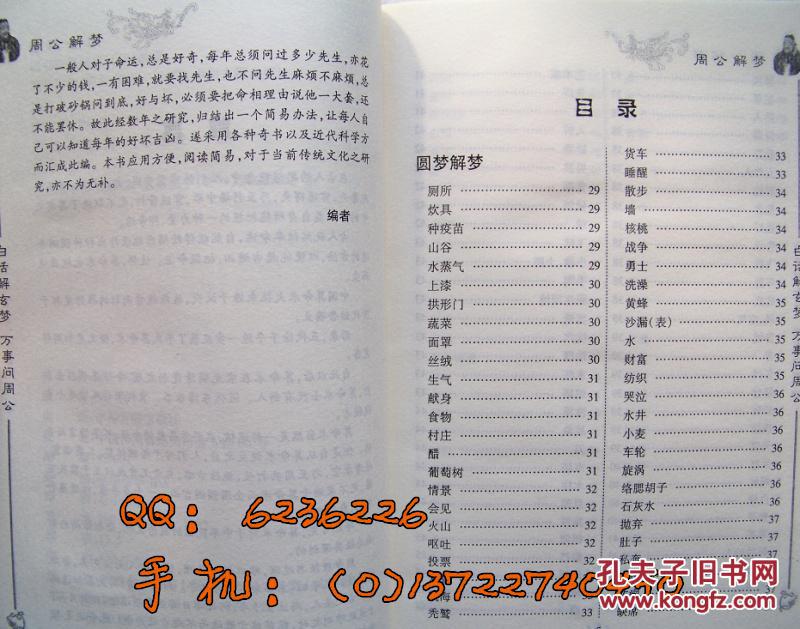 周公解梦
一般人对子命运，总是好奇，每年总须问过多少先生，亦花
了不少的钱，一有困难，就要找先生，也不问先生麻烦不麻烦，总
是打破砂锅问到底，好与坏，必须要把命相理由说他一大套，还
不能罢休。故此经数年之研究，归结出一个简易办法，让每人自
己可以知道每年的好坏吉凶。遂采用各种奇书以及近代科学方
而汇成此编。本书应用方便，阅读简易，对于当前传统文化之研
究，亦不为无补。
编者
白话解玄梦 万事问周公
周公解梦
目录
圆梦解梦
厕所 29
炊具 29
种疫苗 29
山谷 29
水蒸气 29
上漆 30
拱形门 30
蔬菜 30
面罩 30
丝绒 30
生气 31
献身 31
食物 31
村庄 31
醋 31
葡萄树 31
情景 32
会见 32
火山 32
呕吐 32
投票 32
秃鹫
货车 33
睡醒 33
散步 34
墙 34
核桃 34
战争 34
勇士 34
洗澡 34
黄蜂 35
沙漏(表) 35
水 35
财富 35
纺织 35
哭泣 35
水井 36
小麦 36
车轮 36
旋涡 36
络腮胡子 36
石灰水 36
抛弃 37
肚子 37
私奔
缺席
白话解玄梦 万事问周公
QQ: 6236226
手机: (0)13722740
孔夫子旧书网
www.kongfz.com